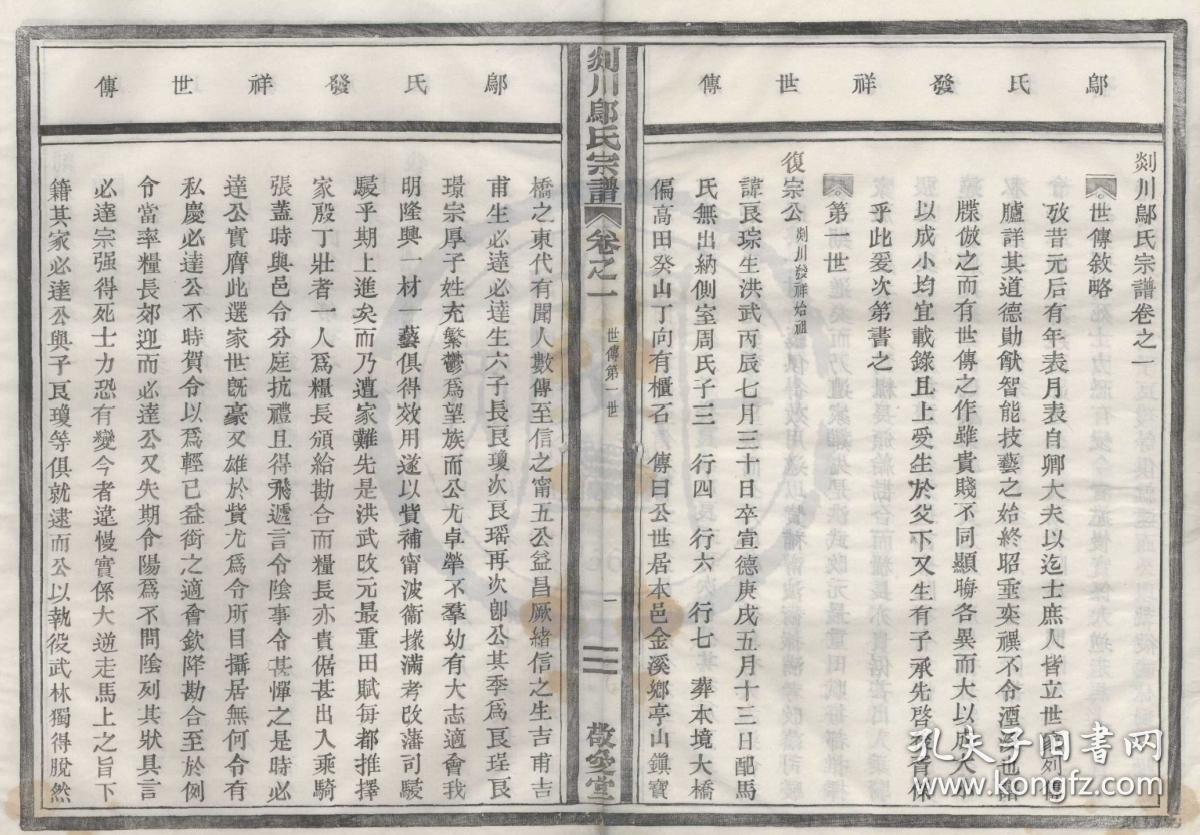 鄔氏發祥世傳
剡川鄔氏宗譜卷之一
世傳敘略
攷昔元后有年表月表自卿大夫以迄士庶人皆立世家列傳
臚詳其道德勛猷智能技藝之始終昭垂奕禩不令湮沒也譜
牒倣之而有世傳之作雖貴賤不同顯晦各異而大以成大小
以成小均宜載錄且上受生於父下又生有子承先啓後責係
乎此爰次第書之
第一世
復宗公 剡川發祥始祖
諱良琮生洪武丙辰七月三十日卒宣德庚戌五月十三日配馬
氏無出納側室周氏子三 行四 行六 行七 葬本境大橋
偏高田癸山丁向有櫃石 傳曰公世居本邑金溪鄉亭山鎮寶
剡川鄔氏宗譜 卷之一 世傳第一世 一 敬愛堂
鄔氏發祥世傳
橋之東代有聞人數傳至信之甯五公益昌厥緒信之生吉甫吉
甫生必達必達生六子長良瓊次良瑶再次卽公其季爲良珵良
璟宗厚子姓充繁鬱爲望族而公尤卓犖不羣幼有大志適會我
明隆興一材一藝俱得效用遂以貲補甯波衞掾滿考改藩司駸
駸乎期上進矣而乃遭家難先是洪武改元最重田賦每都推擇
家殷丁壯者一人爲糧長頒給勘合而糧長亦貴倨甚出入乘騎
張蓋時與邑令分庭抗禮且得飛遞言令陰事令甚憚之是時必
達公實膺此選家世旣豪又雄於貲尤爲令所目攝居無何令有
私慶必達公不時賀令以爲輕己益銜之適會欽降勘合至於例
令當率糧長郊迎而必達公又失期令陽爲不問陰列其狀具言
必達宗强得死士力恐有變今者違慢實係大逆走馬上之旨下
籍其家必達公與子良瓊等俱就逮而公以執役武林獨得脫然
孔夫子旧書网